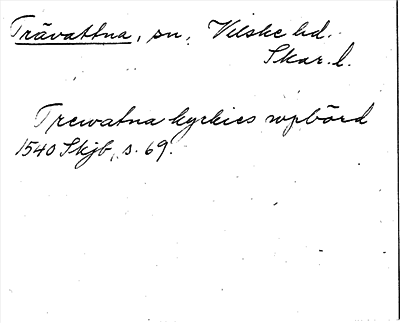 Trävattna, sn, Vilske hd.
Skar. l.
Trewatna kyrkies wpbörd
1540 Skjb, s. 69.